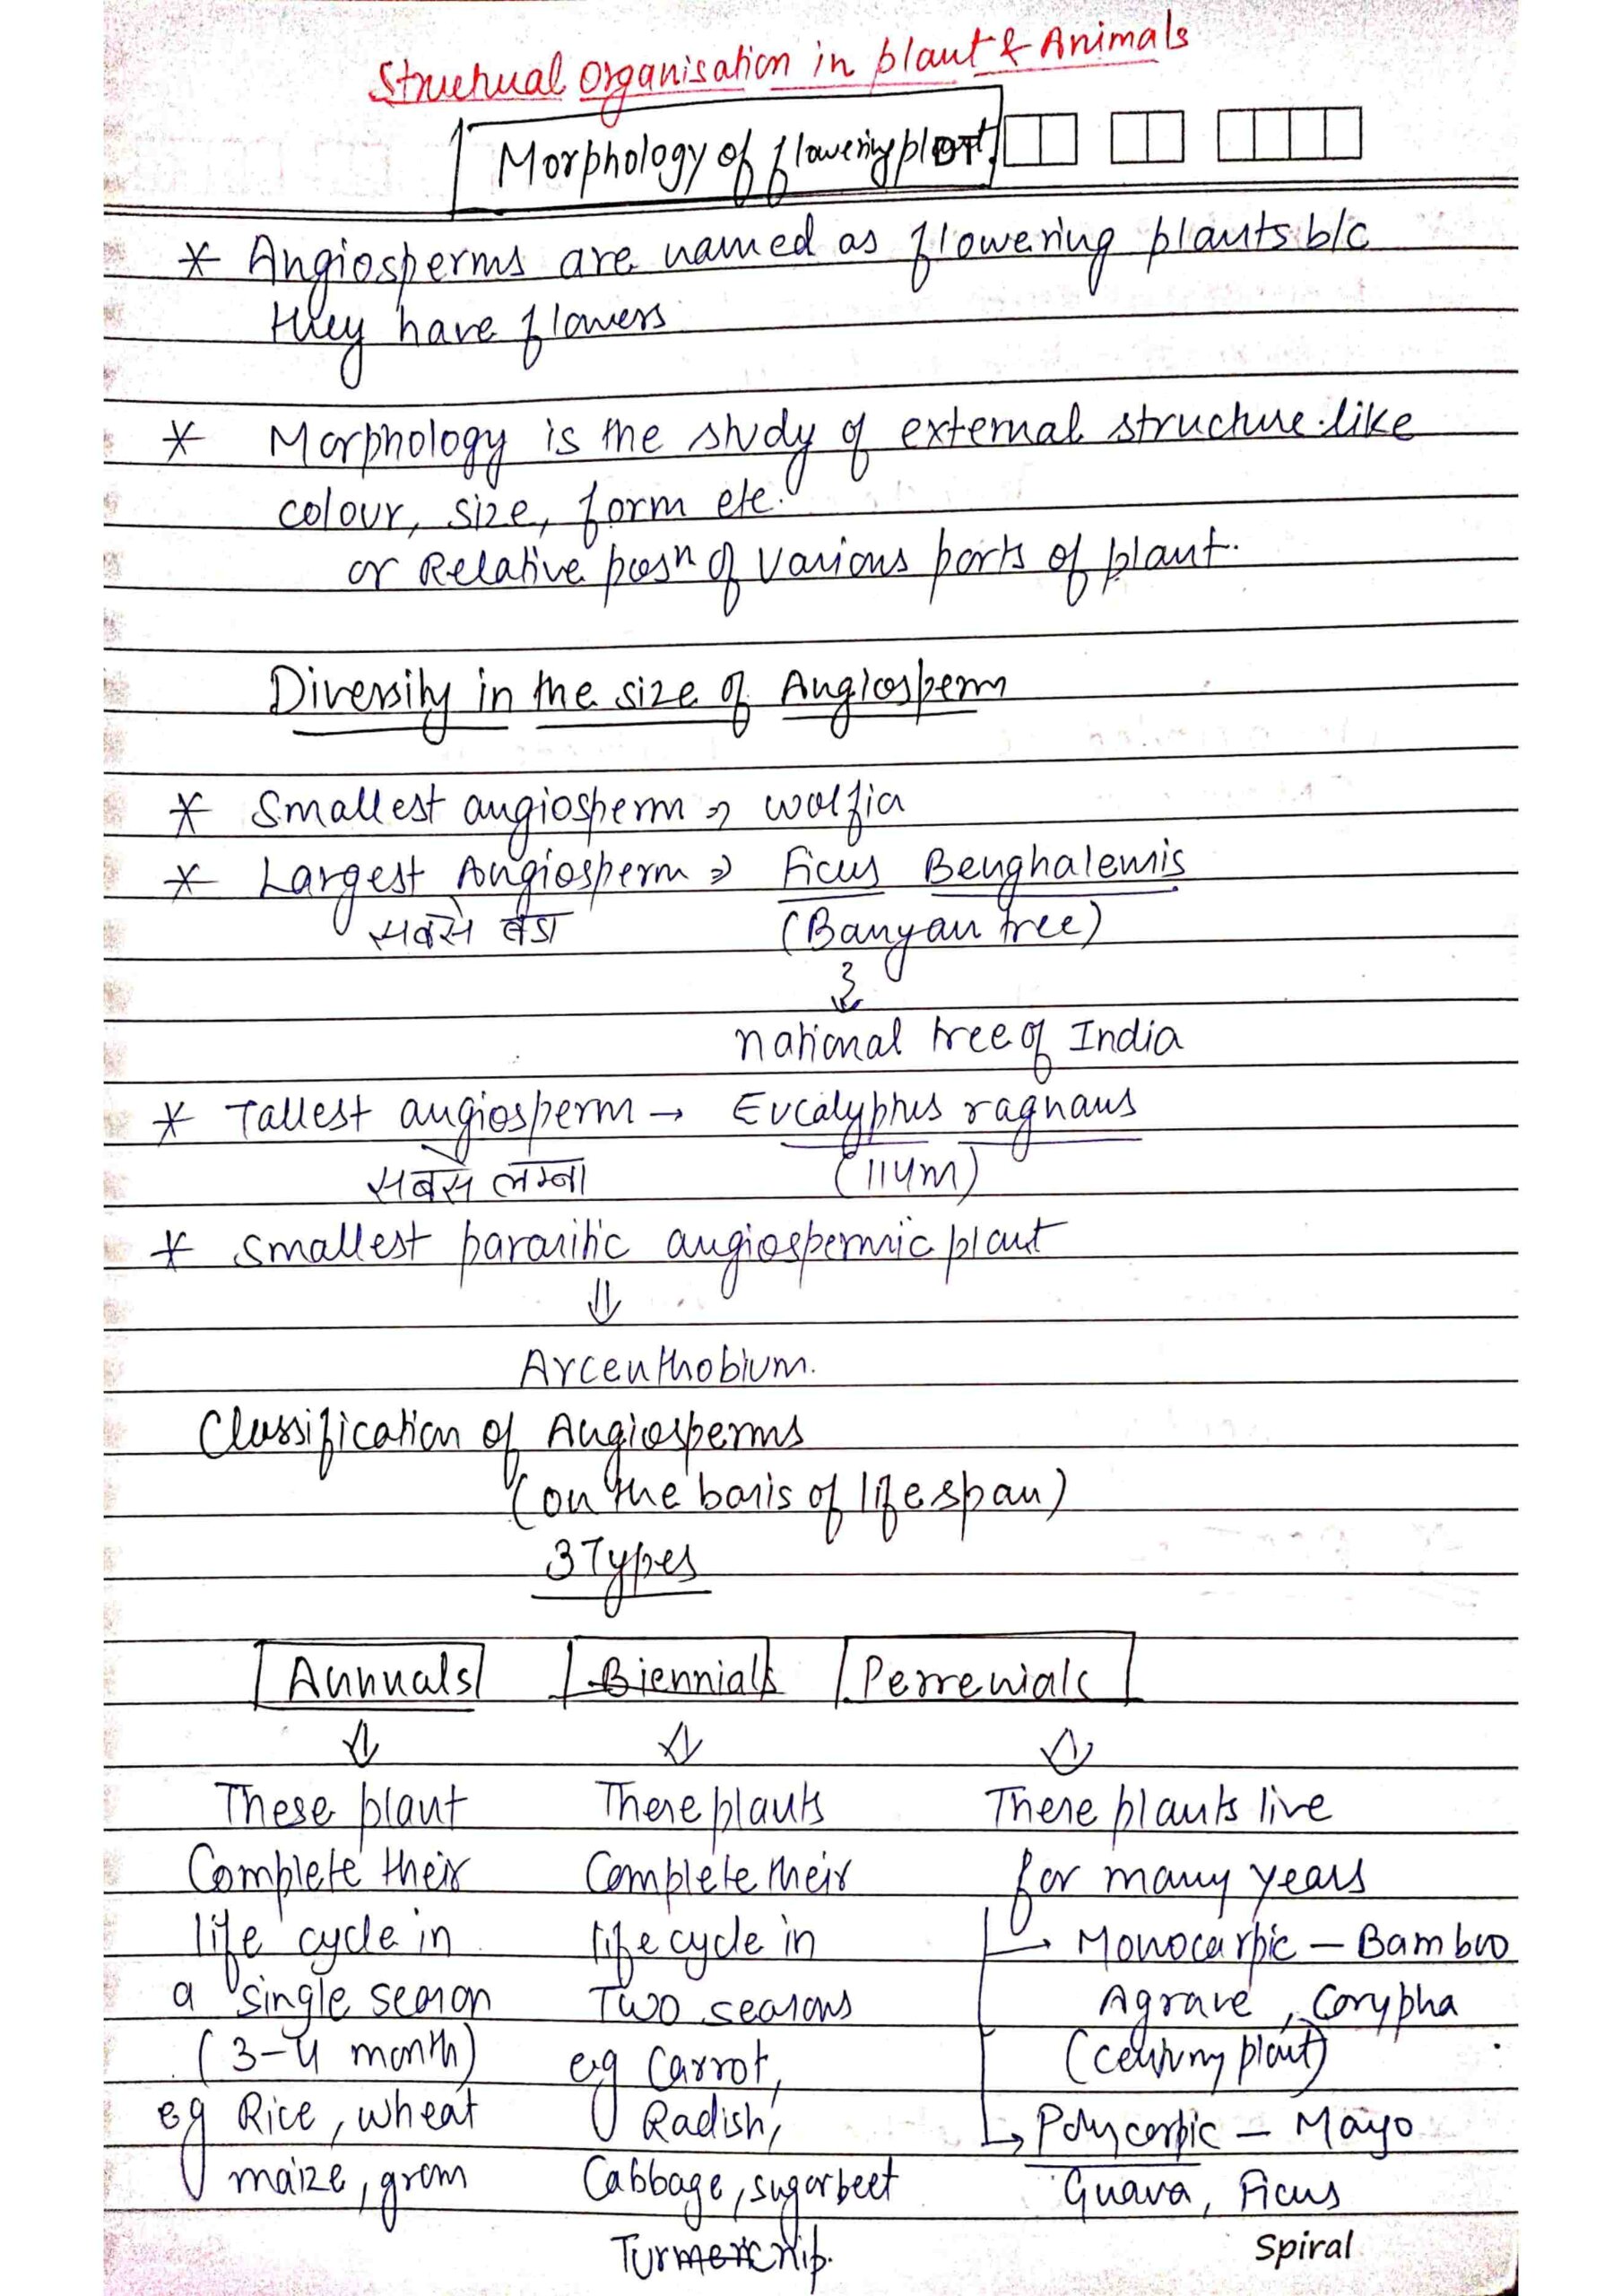 Structural Organisation in plant & Animals
Morphology of flowering plant
* Angiosperms are named as flowering plants b/c
they have flowers
* Morphology is the study of external structure like
colour, size, form etc.
or Relative posn of various parts of plant.
Diversity in the size of Angiosperm
* Smallest angiosperm ⇒ wolfia
* Largest Angiosperm ⇒ Ficus Benghalensis
सबसे बड़ा (Banyan tree)
national tree of India
* Tallest angiosperm → Eucalyptus ragnans
सबसे लम्बा (114m)
* smallest parasitic angiospermic plant
⇓
Arceuthobium.
Classification of Angiosperms
(on the basis of life span)
3 Types
Annuals Biennials Perrenials
These plant These plants These plants live
Complete their Complete their for many years
life cycle in life cycle in → Monocarpic – Bamboo
a single season Two seasons Agrave, Corypha
(3-4 month) eg Carrot, (century plant)
eg Rice, wheat Radish, → Polycarpic – Mayo
maize, gram Cabbage, sugarbeet Guava, Ficus
Turnip.
Spiral